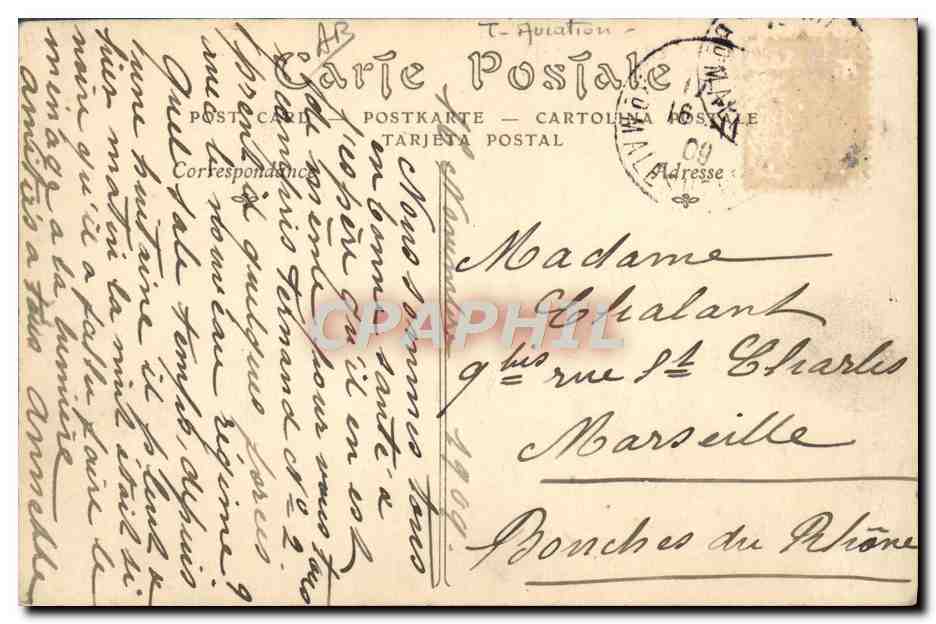 AB
T- Aviation -
Carte Postale
POST CARD — POSTKARTE — CARTOLINA POSTALE
TARJETA POSTAL
Correspondance
Adresse
16
09
Madame
Chalant
9 bis rue St Charles
Marseille
Bouches du Rhône
16 Novembre 1909.
Nous sommes tous
en bonne santé &
j'espère qu'il en est
de même pour vous tous
y compris Fernand No 2.
Prend il quelques forces
avec le nouveau régime ?
Quel sale temps, depuis
une huitaine il pleut &
hier matin la nuit était si
noire qu'il a fallu faire le
ménage a la lumière
amitiés a tous Armelle
CPAPHIL